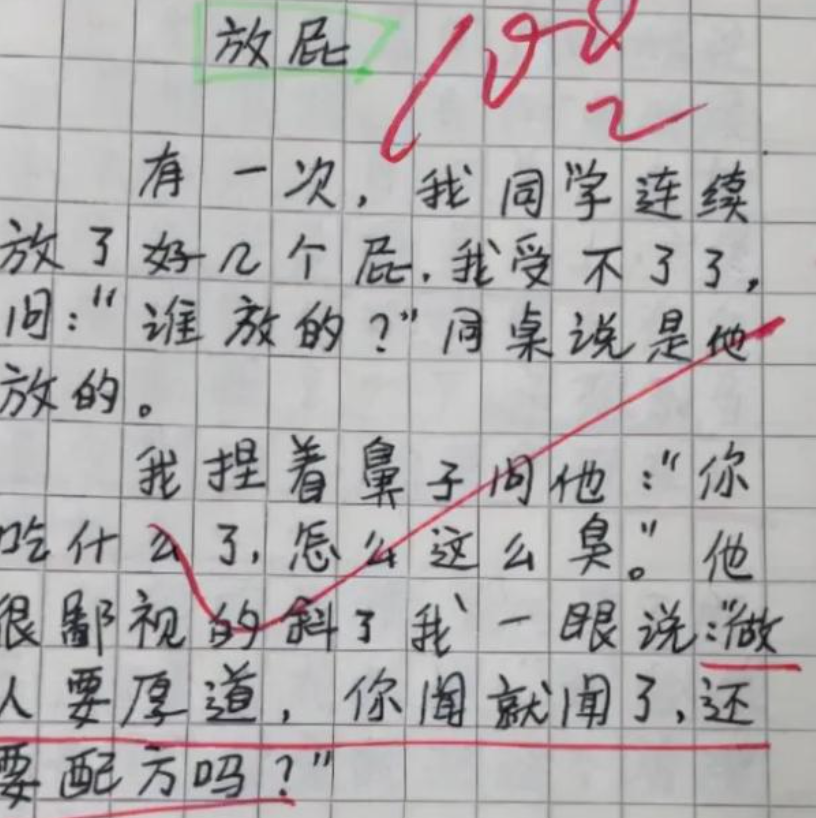 放屁
100
有一次,我同学连续
放了好几个屁.我受不了了,
问:"谁放的?"同桌说是他
放的。
我捏着鼻子问他:"你
吃什么了,怎么这么臭。"他
很鄙视的斜了我一眼说:"做
人要厚道,你闻就闻了,还
要配方吗?"